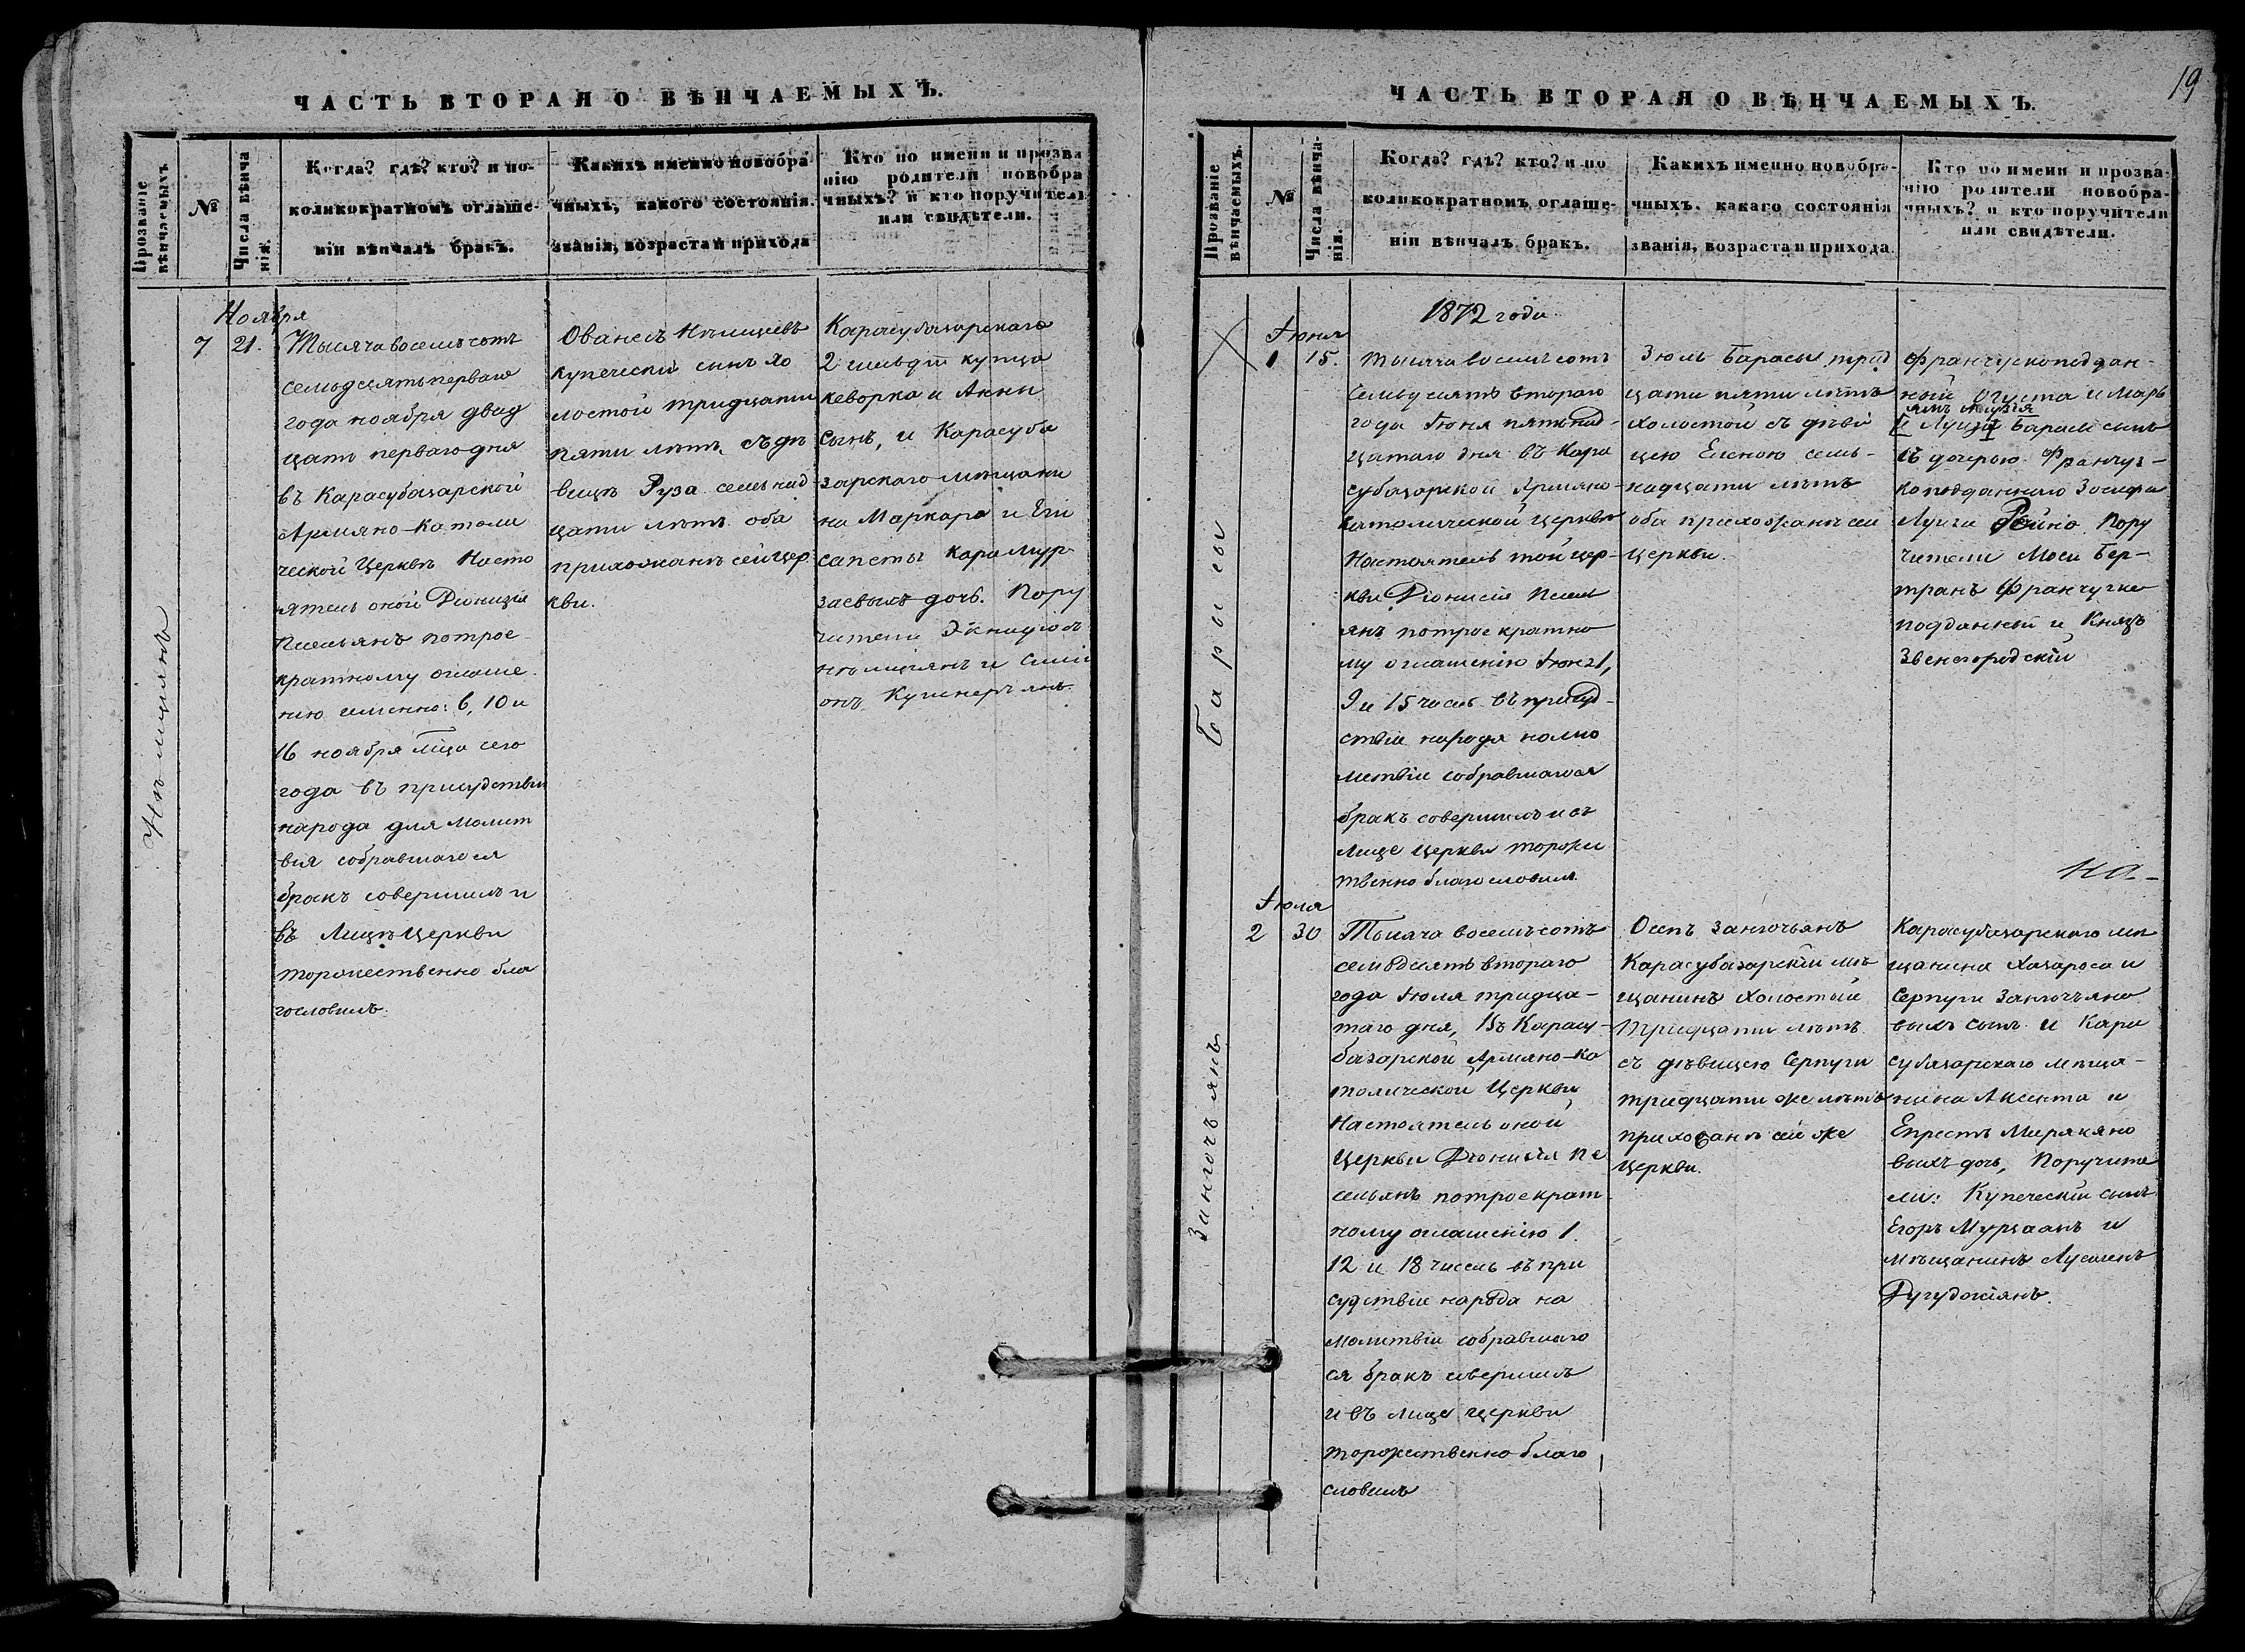 ЧАСТЬ ВТОРАЯ О ВѢНЧАЕМЫХЪ.
Прозваніе вѣнчаемыхъ
№
Числа вѣнча нія.
Когда? гдѣ? кто? и по-
коликократномъ оглаше-
ніи вѣнчалъ бракъ.
Какихъ именно новобра
чныхъ, какого состоянія.
званія, возраста и прихода
Кто по имени и прозва
нію родители новобра
чныхъ? и кто поручители
или свидѣтели.
Ноября
7
21.
Тысяча восемьсотъ
семьдсятъ перваго
года ноября двад
цать перваго дня
въ Карасубазарской
Армяно-Католи
ческой Церквѣ Насто
ятель оной Діонизія
потрое
кратному оглаше
нію именно: 6, 10 и
16 ноября м̃ца сего
года въ присудствіи
народа для молит
вія собравшагося
бракъ совершилъ и
въ Лицѣ Церкви
торжественно бла
гословилъ.
Ованесъ Нѣмцевъ
купеческій сынъ хо
лостой тридцати
пяти лѣтъ, съ дѣ
вицѣ Руза семьнад
цати лѣтъ оба
прихожанъ сей Цер
кви.
Карасубазарскаго
2 гильдіи купца
Кеворка и Анны
сынъ, и Карасуба
зарскаго мѣщани
на Маркара и Еги
сапеты Карамур
заевыхъ дочь. Пору
чители
и Сим
онъ Кушнерьянъ.
ЧАСТЬ ВТОРАЯ О ВѢНЧАЕМЫХЪ.
19
Прозваніе вѣнчаемыхъ.
№
Числа вѣнча- нія.
Когда? гдѣ? кто? и по
коликократномъ оглаше-
ніи вѣнчалъ бракъ.
Какихъ именно новобра-
чныхъ. какаго состоянія
званія, возраста и прихода
Кто по имени и прозва-
нію родители новобра-
чныхъ? и кто поручители
или свидѣтели.
1872 года
Барасы
Іюня
1
15.
Тысяча восемьсотъ
семьдсятъ втораго
года Іюня пятьнад-
цатаго дня въ Кара
субазарской Армяно-
католической церкви
Настоятель той цер-
кви Діонисія
янъ потроекратно
му оглашенію Іюня 1,
9 и 15 числъ въ присуд-
ствіи народа на мо
литвіи собравшагося
бракъ совершилъ и въ
Лице Церкви торже
твенно благословилъ.
Зюль Барасы трид
цати пяти лѣтъ
холостой съ дѣви
цею Еленою семь-
надцати лѣтъ
оба прихожанъ сей
Церкви.
Французскоподдан-
ной Огуста и Марь
ямъ Луизія
и Луизія Бараси сынъ
съ дочерью Француз-
коподданнаго Зосифа
Луиги Рейно. Пору
чители Моси Бер-
транъ Французко
подданный и Князь
Звенегородскій
на-
Зангочъянъ
Іюля
2
30
Тысяча восемьсотъ
семьдсятъ втораго
года Іюля тридца-
таго дня, Въ Карасу-
базарской Армяно-Ка
толической Церкви
Настоятель оной
Церкви Діонисія Пе
сельянъ потроекрат
ному оглашенію 1.
12 и 18 числъ въ при
судствіе народа на
молитвіи собравшаго
ся бракъ совершилъ
и въ лице церкви
торжественно благо
словилъ
Осепъ Зангочьянъ
Карасубазарскій мѣ
щанинъ Холостый
тридцати лѣтъ
съ дѣвицею Серпуги
тридцати же лѣтъ
прихожанъ сей же
Церкви.
Карасубазарскаго мѣ
щанина Хазароса и
Серпуги Зангочъяно
выхъ сынъ и Кара
субазарскаго мѣща-
нина Аксента и
Епрестъ Мирякяно
выхъ дочь, Поручите
ли: Купеческій сынъ
Егоръ Мурзаанъ и
мѣщанинъ Лусегенъ
Дугуджіянъ.